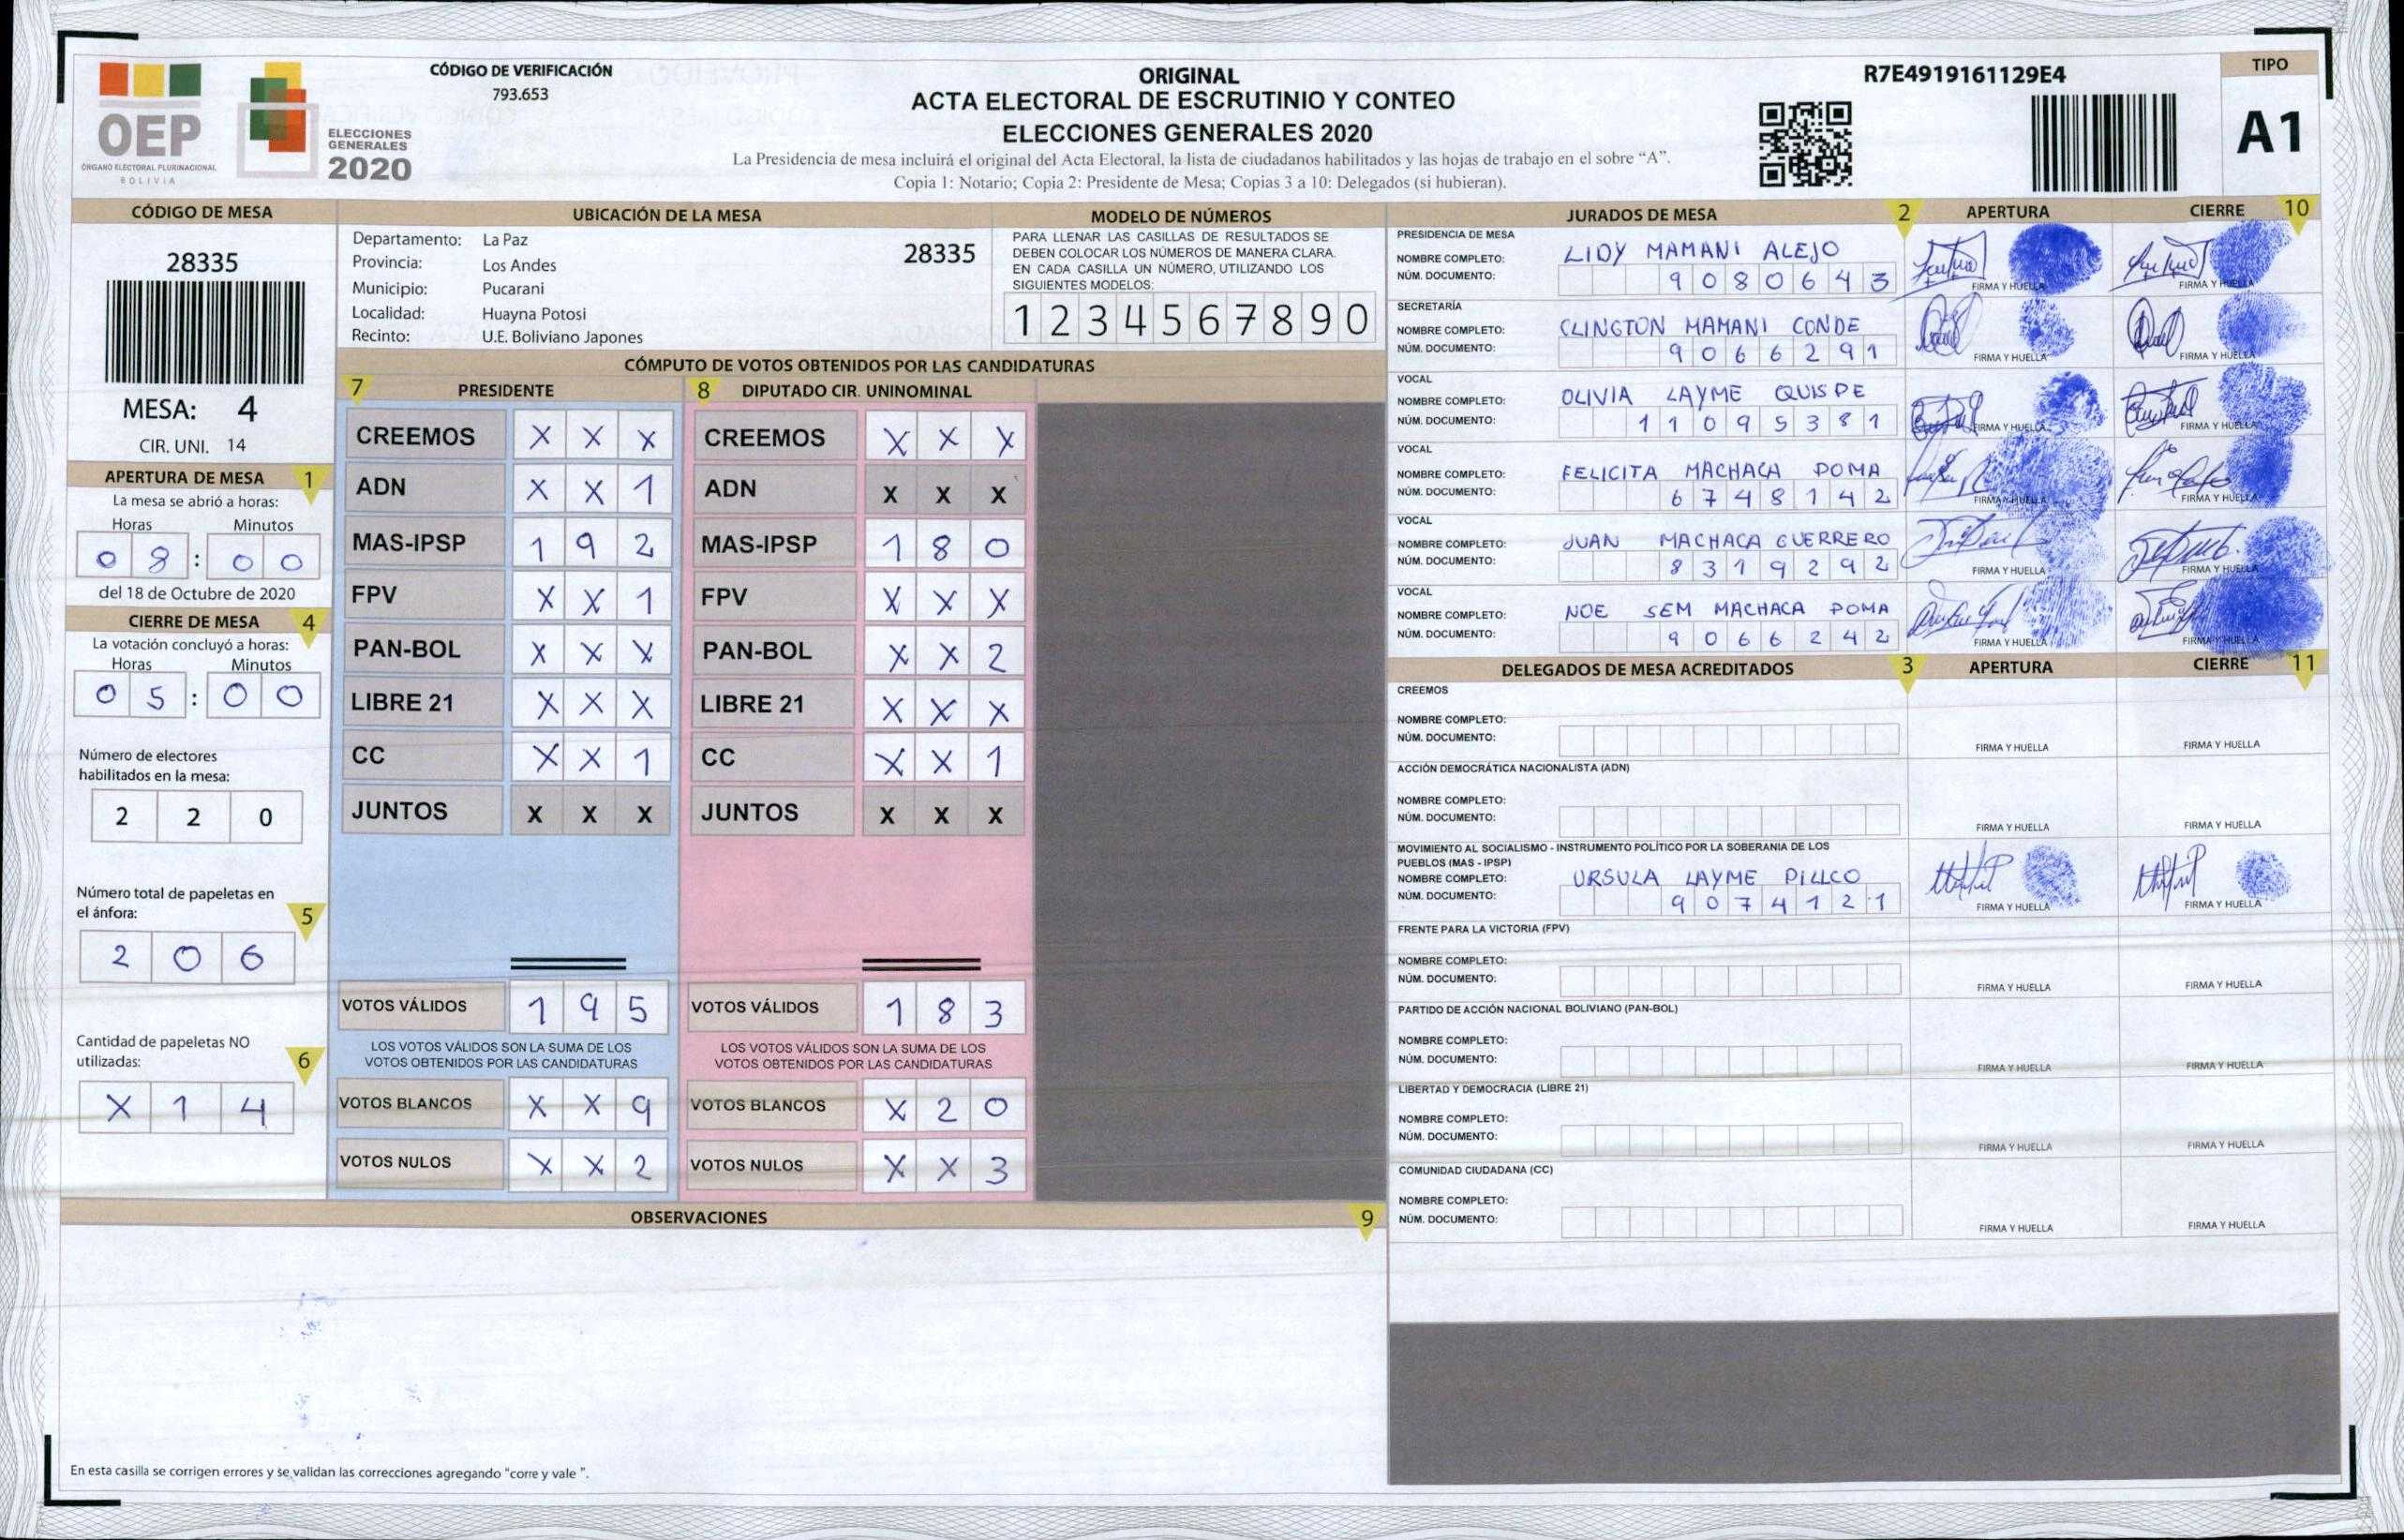 OEP
ÓRGANO ELECTORAL PLURINACIONAL
BOLIVIA
ELECCIONES
GENERALES
2020
CÓDIGO DE VERIFICACIÓN
793.653
ORIGINAL
ACTA ELECTORAL DE ESCRUTINIO Y CONTEO
ELECCIONES GENERALES 2020
La Presidencia de mesa incluirá el original del Acta Electoral, la lista de ciudadanos habilitados y las hojas de trabajo en el sobre “A”.
Copia 1: Notario; Copia 2: Presidente de Mesa; Copias 3 a 10: Delegados (si hubieran).
R7E4919161129E4
TIPO
A1
CÓDIGO DE MESA
28335
MESA: 4
CIR. UNI. 14
APERTURA DE MESA 1
La mesa se abrió a horas:
Horas Minutos
0 8 : 0 0
del 18 de Octubre de 2020
CIERRE DE MESA 4
La votación concluyó a horas:
Horas Minutos
0 5 : 0 0
Número de electores
habilitados en la mesa:
2 2 0
Número total de papeletas en
el ánfora: 5
2 0 6
Cantidad de papeletas NO
utilizadas: 6
X 1 4
UBICACIÓN DE LA MESA
Departamento: La Paz 28335
Provincia: Los Andes
Municipio: Pucarani
Localidad: Huayna Potosi
Recinto: U.E. Boliviano Japones
MODELO DE NÚMEROS
PARA LLENAR LAS CASILLAS DE RESULTADOS SE
DEBEN COLOCAR LOS NÚMEROS DE MANERA CLARA.
EN CADA CASILLA UN NÚMERO, UTILIZANDO LOS
SIGUIENTES MODELOS:
1 2 3 4 5 6 7 8 9 0
CÓMPUTO DE VOTOS OBTENIDOS POR LAS CANDIDATURAS
7 PRESIDENTE 8 DIPUTADO CIR. UNINOMINAL
CREEMOS X X X CREEMOS X X X
ADN X X 1 ADN X X X
MAS-IPSP 1 9 2 MAS-IPSP 1 8 0
FPV X X 1 FPV X X X
PAN-BOL X X X PAN-BOL X X 2
LIBRE 21 X X X LIBRE 21 X X X
CC X X 1 CC X X 1
JUNTOS X X X JUNTOS X X X
VOTOS VÁLIDOS 1 9 5 VOTOS VÁLIDOS 1 8 3
LOS VOTOS VÁLIDOS SON LA SUMA DE LOS LOS VOTOS VÁLIDOS SON LA SUMA DE LOS
VOTOS OBTENIDOS POR LAS CANDIDATURAS VOTOS OBTENIDOS POR LAS CANDIDATURAS
VOTOS BLANCOS X X 9 VOTOS BLANCOS X 2 0
VOTOS NULOS X X 2 VOTOS NULOS X X 3
OBSERVACIONES 9
En esta casilla se corrigen errores y se validan las correcciones agregando “corre y vale ”.
JURADOS DE MESA 2 APERTURA CIERRE 10
PRESIDENCIA DE MESA
NOMBRE COMPLETO: LIDY MAMANI ALEJO
NÚM. DOCUMENTO: 9 0 8 0 6 4 3 FIRMA Y HUELLA FIRMA Y HUELLA
SECRETARÍA
NOMBRE COMPLETO: CLINGTON MAMANI CONDE
NÚM. DOCUMENTO: 9 0 6 6 2 9 1 FIRMA Y HUELLA FIRMA Y HUELLA
VOCAL
NOMBRE COMPLETO: OLIVIA LAYME QUISPE
NÚM. DOCUMENTO: 1 1 0 9 5 3 8 1 FIRMA Y HUELLA FIRMA Y HUELLA
VOCAL
NOMBRE COMPLETO: FELICITA MACHACA POMA
NÚM. DOCUMENTO: 6 7 4 8 1 4 2 FIRMA Y HUELLA FIRMA Y HUELLA
VOCAL
NOMBRE COMPLETO: JUAN MACHACA GUERRERO
NÚM. DOCUMENTO: 8 3 1 9 2 9 2 FIRMA Y HUELLA FIRMA Y HUELLA
VOCAL
NOMBRE COMPLETO: NOE SEM MACHACA POMA
NÚM. DOCUMENTO: 9 0 6 6 2 4 2 FIRMA Y HUELLA FIRMA Y HUELLA
DELEGADOS DE MESA ACREDITADOS 3 APERTURA CIERRE 11
CREEMOS
NOMBRE COMPLETO:
NÚM. DOCUMENTO: FIRMA Y HUELLA FIRMA Y HUELLA
ACCIÓN DEMOCRÁTICA NACIONALISTA (ADN)
NOMBRE COMPLETO:
NÚM. DOCUMENTO: FIRMA Y HUELLA FIRMA Y HUELLA
MOVIMIENTO AL SOCIALISMO - INSTRUMENTO POLÍTICO POR LA SOBERANIA DE LOS
PUEBLOS (MAS - IPSP)
NOMBRE COMPLETO: URSULA LAYME PILLCO
NÚM. DOCUMENTO: 9 0 7 4 1 2 1 FIRMA Y HUELLA FIRMA Y HUELLA
FRENTE PARA LA VICTORIA (FPV)
NOMBRE COMPLETO:
NÚM. DOCUMENTO: FIRMA Y HUELLA FIRMA Y HUELLA
PARTIDO DE ACCIÓN NACIONAL BOLIVIANO (PAN-BOL)
NOMBRE COMPLETO:
NÚM. DOCUMENTO: FIRMA Y HUELLA FIRMA Y HUELLA
LIBERTAD Y DEMOCRACIA (LIBRE 21)
NOMBRE COMPLETO:
NÚM. DOCUMENTO: FIRMA Y HUELLA FIRMA Y HUELLA
COMUNIDAD CIUDADANA (CC)
NOMBRE COMPLETO:
NÚM. DOCUMENTO: FIRMA Y HUELLA FIRMA Y HUELLA